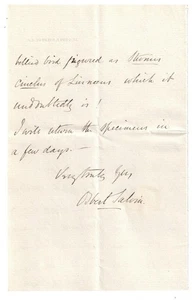 bird figured is Sturnus
Cinclus of Linnæus which it
undoubtedly is!
I will return the specimens in
a few days —
Very truly Yrs
Osbert Salvin